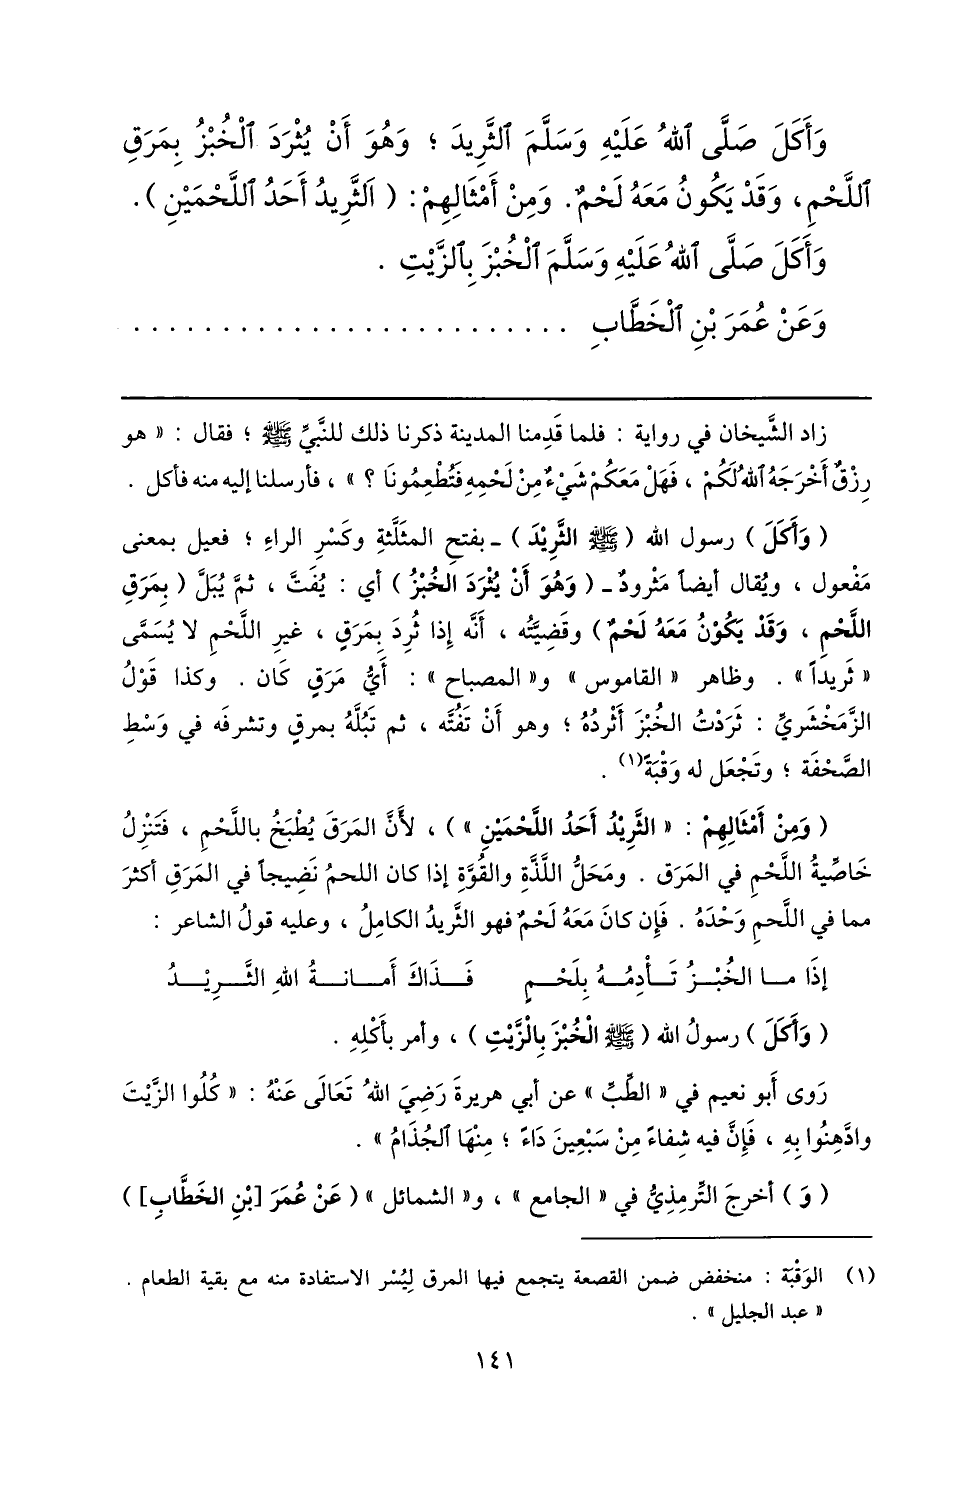 وَأَكَلَ صَلَّى ٱللهُ عَلَيْهِ وَسَلَّمَ ٱلثَّرِيدَ ؛ وَهُوَ أَنْ يُثْرَدَ ٱلْخُبْزُ بِمَرَقِ
ٱللَّحْمِ، وَقَدْ يَكُونُ مَعَهُ لَحْمٌ. وَمِنْ أَمْثَالِهِمْ: ( اَلثَّرِيدُ أَحَدُ اللَّحْمَيْنِ ).
وَأَكَلَ صَلَّى ٱللهُ عَلَيْهِ وَسَلَّمَ ٱلْخُبْزَ بِٱلزَّيْتِ .
وَعَنْ عُمَرَ بْنِ ٱلْخَطَّابِ . . . . . . . . . . . . . . . . . . . . . . . . .
زاد الشَّيخان في رواية : فلما قَدِمنا المدينة ذكرنا ذلك للنَّبيِّ ﷺ ؛ فقال : « هو
رِزْقٌ أَخْرَجَهُ ٱللهُ لَكُمْ ، فَهَلْ مَعَكُمْ شَيْءٌ مِنْ لَحْمِهِ فَتُطْعِمُونَا ؟ » ، فأرسلنا إليه منه فأكل .
( وَأَكَلَ ) رسول الله ( ﷺ الثَّرِيْدَ ) ـ بفتحِ المثلَّثةِ وكَسْرِ الراءِ ؛ فعيل بمعنى
مَفْعول ، ويُقال أيضاً مَثْرودٌ ـ ( وَهُوَ أَنْ يُثْرَدَ الخُبْزُ ) أي : يُفَتَّ ، ثمَّ يُبَلَّ ( بِمَرَقِ
اللَّحْمِ ، وَقَدْ يَكُوْنُ مَعَهُ لَحْمٌ ) وقضِيَّتُه ، أنَّه إِذا ثُرِدَ بِمَرَقٍ ، غيرِ اللَّحْمِ لا يُسَمَّى
« ثَريداً » . وظاهر « القاموس » و« المصباح » : أيُّ مَرَقٍ كَان . وكذا قَوْلُ
الزَّمَخْشَريِّ : ثَرَدْتُ الخُبْزَ أَثْردُهُ ؛ وهو أَنْ تَفُتَّه ، ثم تَبُلَّهُ بمرقٍ وتشرفَه في وَسْطِ
الصَّحْفَة ؛ وتَجْعَل له وَقْبَةً(١) .
( وَمِنْ أَمْثَالِهِمْ : « الثَّرِيْدُ أَحَدُ اللَّحْمَيْنِ » ) ، لأَنَّ المَرَقَ يُطْبَخُ باللَّحْمِ ، فَتَنْزِلُ
خَاصِّيةُ اللَّحْمِ في المَرَق . ومَحَلُّ اللَّذَّةِ والقُوَّةِ إذا كان اللحمُ نَضِيجاً في المَرَقِ أكثرَ
مما في اللَّحمِ وَحْدَهُ . فَإِن كانَ مَعَهُ لَحْمٌ فهو الثَّريدُ الكامِلُ ، وعليه قولُ الشاعر :
إذَا مـا الخُبْـزُ تَـأْدِمُـهُ بِلَحْـمٍ فَـذَاكَ أمَـانَـةُ اللهِ الثَّـرِيْـدُ
( وَأَكَلَ ) رسولُ الله ( ﷺ الْخُبْزَ بِالزَّيْتِ ) ، وأمر بأَكْلِهِ .
رَوى أَبو نعيم في « الطِّبِّ » عن أبي هريرةَ رَضِيَ اللهُ تَعَالَى عَنْهُ : « كُلُوا الزَّيْتَ
وادَّهِنُوا بِهِ ، فَإِنَّ فيه شِفاءً مِنْ سَبْعِينَ دَاءً ؛ مِنْهَا ٱلجُذَامُ » .
( وَ ) أخرجَ التِّرمِذِيُّ في « الجامع » ، و« الشمائل » ( عَنْ عُمَرَ [بْنِ الخَطَّابِ] )
(١) الوَقْبَة : منخفض ضمن القصعة يتجمع فيها المرق لِيُسْر الاستفادة منه مع بقية الطعام .
« عبد الجليل » .
١٤١